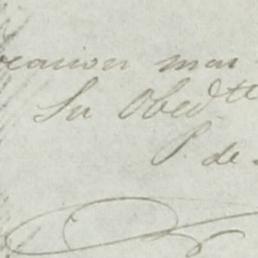 ocasion mas
Su Obed.tte
P. de